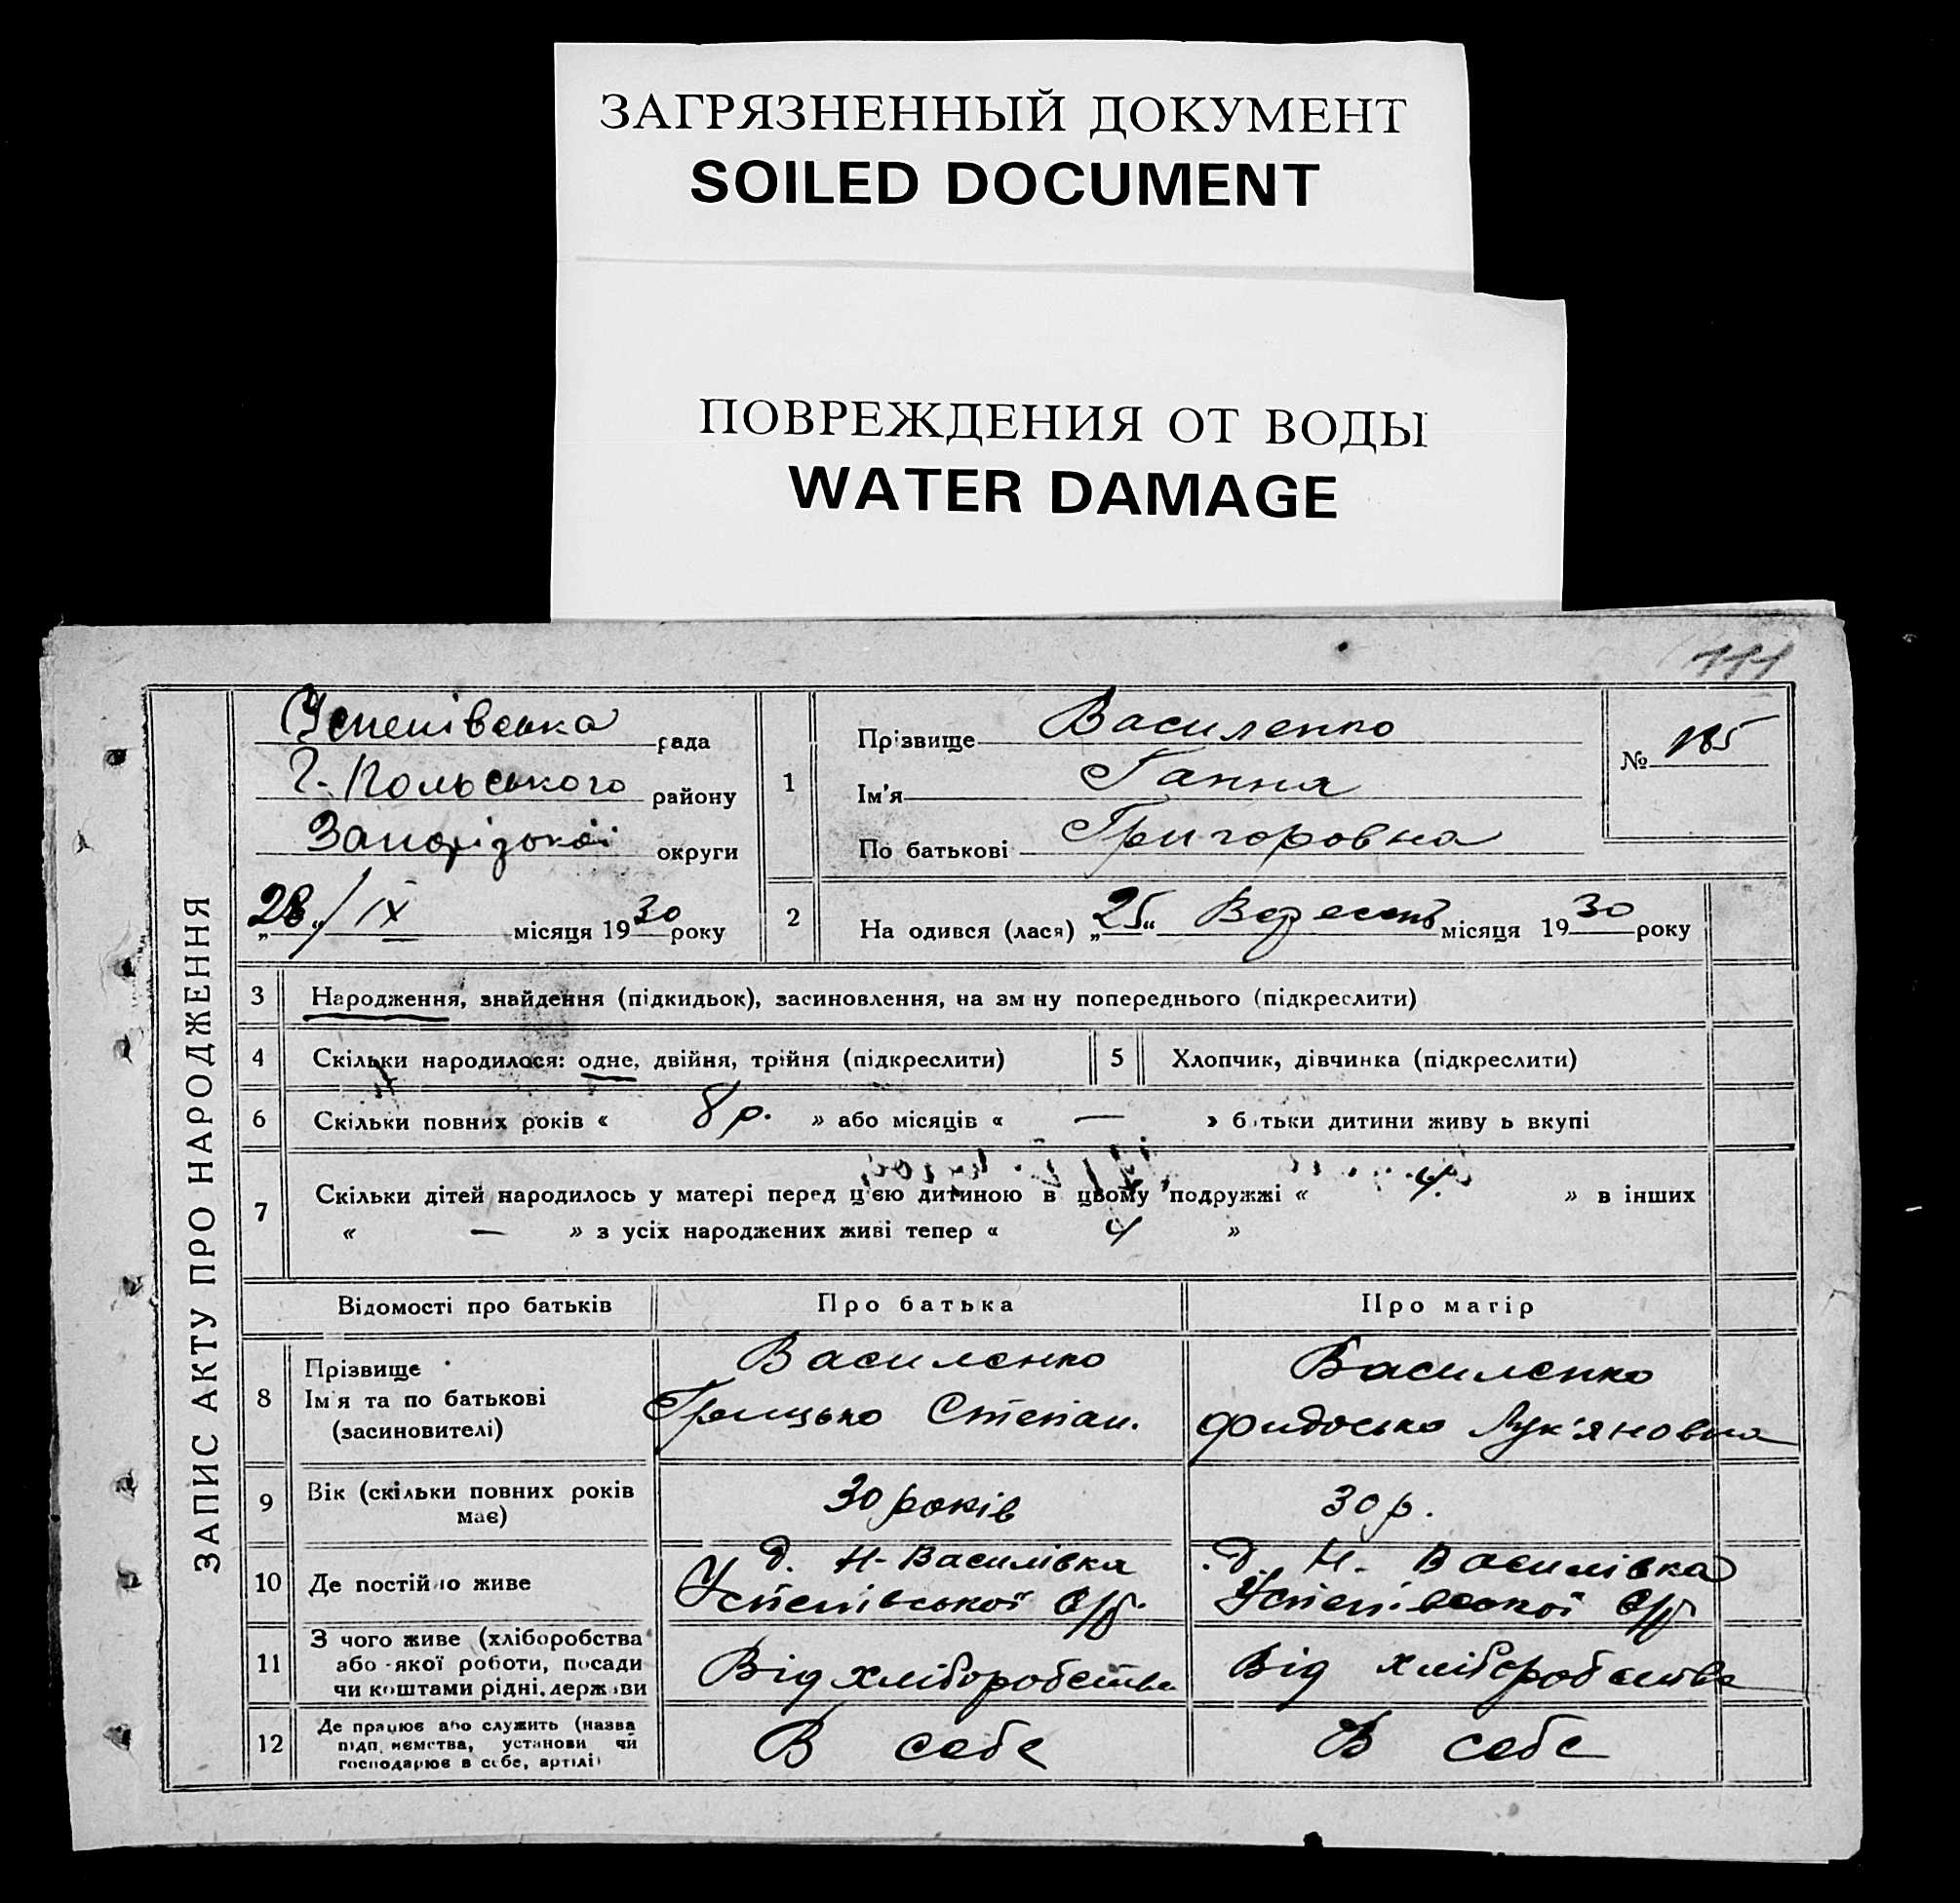 ЗАГРЯЗНЕННЫЙ ДОКУМЕНТ
SOILED DOCUMENT
ПОВРЕЖДЕНИЯ ОТ ВОДЫ
WATER DAMAGE
111
ЗАПИС АКТУ ПРО НАРОДЖЕННЯ
Успенівська рада
Г. Польського району
Запорізької округи
„28“/IX місяця 1930 року
1
Прізвище Василенко
Ім'я Ганна
По батькові Григоровна
№ 185
2 На одився (лася) „25“ Вересень місяця 1930 року
3 Народження, знайдення (підкидьок), засиновлення, на зм ну попереднього (підкреслити)
4 Скільки народилося: одне, двійня, трійня (підкреслити) 5 Хлопчик, дівчинка (підкреслити)
6 Скільки повних років « 8 р. » або місяців « — » б тьки дитини живу ь вкупі
7 Скільки дітей народилось у матері перед цією дитиною в цьому подружжі « 4 » в інших
« — » з усіх народжених живі тепер « 4 »
Відомості про батьків Про батька Про матір
8 Прізвище
Ім'я та по батькові
(засиновителі)
Василенко
Грицько Степан.
Василенко
Фидоська Лук'яновна
9 Вік (скільки повних років
має)
30 років 30 р.
10 Де постійно живе
д. Н-Василівка
Успенівської с/р.
д. Н. Василівка
Успенівської с/р
11 З чого живе (хліборобства
або якої роботи, посади
чи коштами рідні, держави
Від хліборобства Від хліборобства
12 Де працює або служить (назва
підп иємства, установи чи
господарює в себе, артілі)
В себе В себе